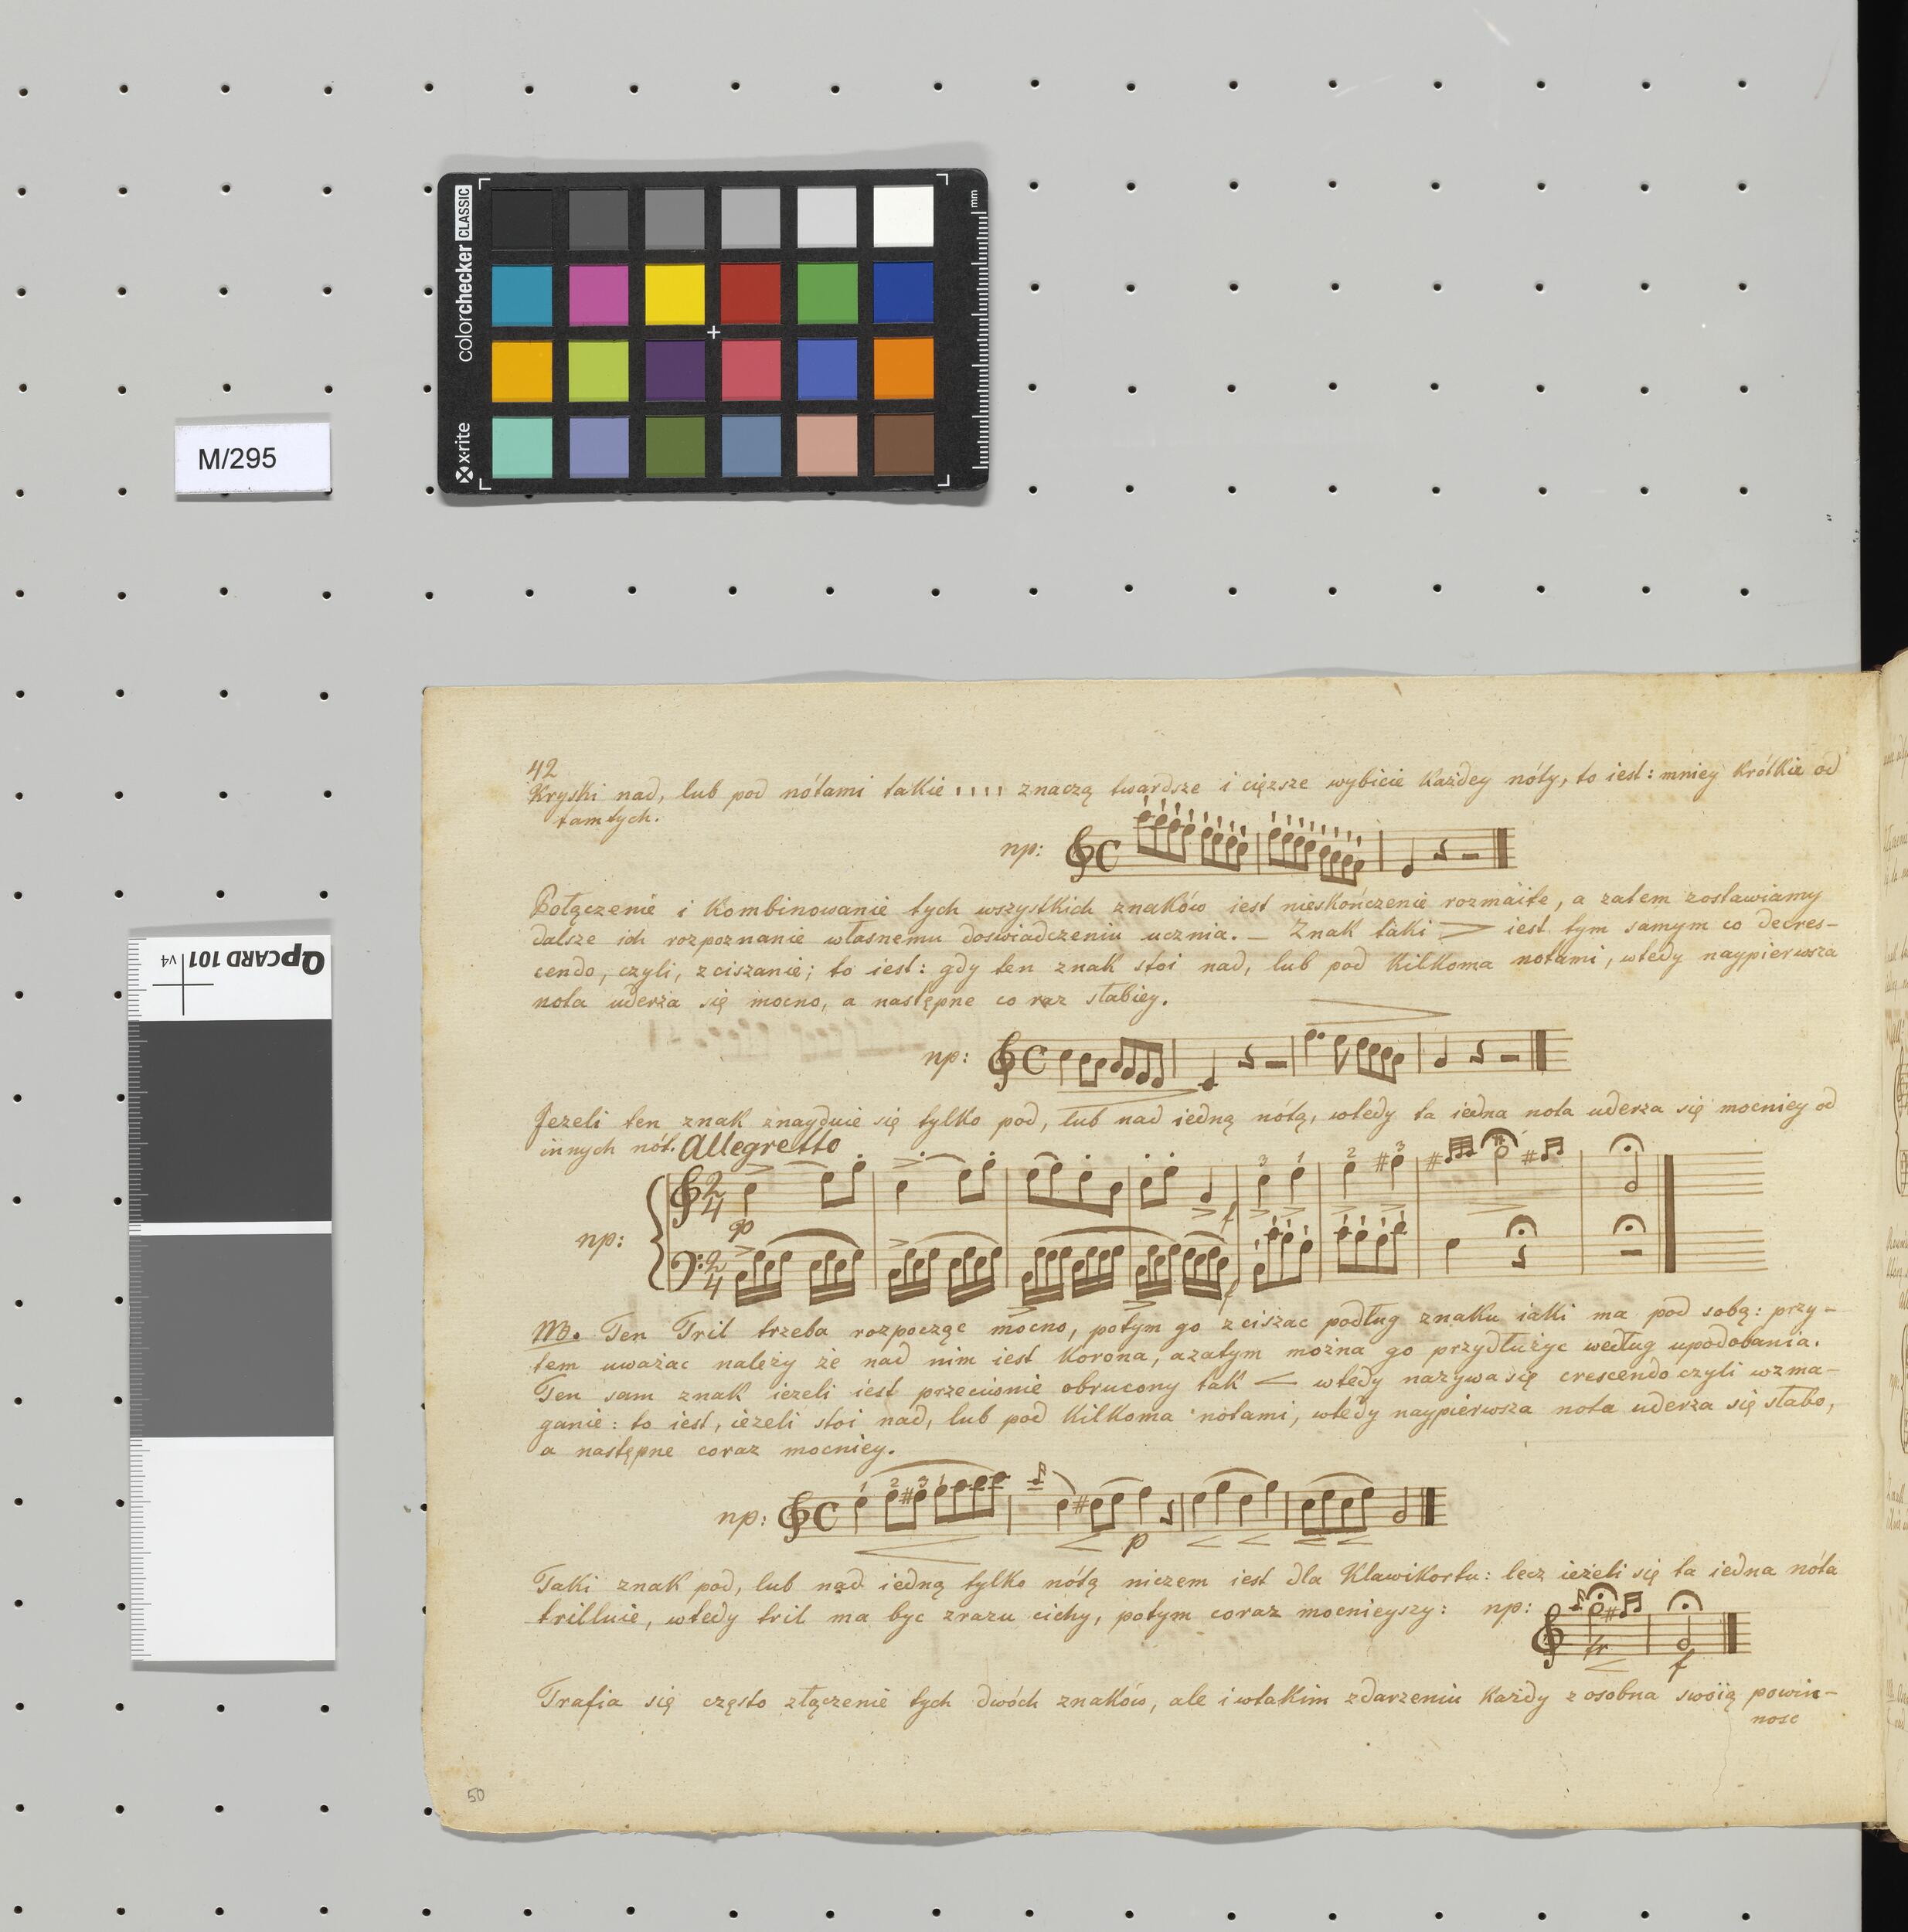 colorchecker CLASSIC
x-rite
mm
M/295
QPCARD 101 v4
42
Kryski nad, lub pod nótami takie ıııı znaczą twardsze i cięzsze wybicie każdey nóty, to iest: mniey krótkie od
tamtych.
np:
Połączenie i kombinowanie tych wszystkich znaków iest nieskończenie rozmaite, a zatem zostawiamy
dalsze ich rozpoznanie własnemu doswiadczeniu ucznia. — Znak taki > iest tym samym co decres-
cendo, czyli, zciszanie; to iest: gdy ten znak stoi nad, lub pod kilkoma notami, wtedy naypierwsza
nota uderza się mocno, a następne co raz słabiey.
np:
Jezeli ten znak znayduie się tylko pod, lub nad iedną nótą, wtedy ta iedna nota uderza się mocniey od
innych nót. Allegretto
3 1 2 3
2/4 p f
np:
2/4 f
NB. Ten Tril trzeba rozpocząc mocno, potym go zciszac podług znaku iaki ma pod sobą: przy-
tem uważac należy że nad nim iest korona, azatym można go przydłużyc według upodobania.
Ten sam znak ieżeli iest przeciwnie obrucony tak < wtedy nazywa się crescendo czyli wzma-
ganie: to iest, ieżeli stoi nad, lub pod kilkoma notami, wtedy naypierwsza nota uderza się słabo,
a następne coraz mocniey.
1 2 3 1
np:
p
Taki znak pod, lub nad iedną tylko nótą niczem iest dla Klawikortu: lecz ieżeli się ta iedna nóta
trilluie, wtedy tril ma byc zrazu cichy, potym coraz mocnieyszy: np:
tr f
Trafia się często złączenie tych dwóch znaków, ale i wtakim zdarzeniu każdy z osobna swoią powin-
nosc
50